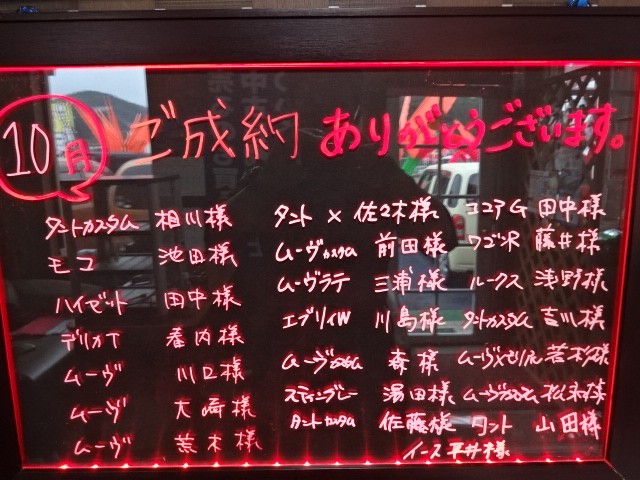 10月 ご成約 ありがとうございます。
タントカスタム 相川様
モコ 池田様
ハイゼット 田中様
デリカT 蓋内様
ムーヴ 川口様
ムーヴ 大崎様
ムーヴ 荒木様
タント × 佐々木様
ムーヴカスタム 前田様
ムーヴラテ 三浦様
エブリイW 川島様
ムーヴカスタム 森様
スティングレー 湯田様
タントカスタム 佐藤様
イース 平井様
エコアG 田中様
ワゴンR 藤井様
ルークス 浅野様
タントカスタム 吉川様
ムーヴ 若杉様
ムーヴカスタム 松本様
タント 山田様